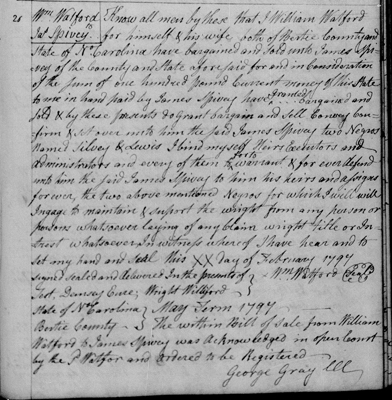 21 Wm. Watford Know all men by these that I William Watford
to
Jas. Spivey for himself & his wife both of Bertie County and
State of No. Carolina have bargained and Sold unto James Spi-
vey of the County and State afore said for and in Consideration
of the Sum of one hundred pound Current money of this State
to me in hand paid by James Spivey have Granted bargained and
Sold & by these presents do Grant bargain and Sell Convey Con-
firm & Set over unto him the said James Spivey two Negros
Named Silvey & Lewis I bind myself Heirs Executors and
administrators and every of them to Warrant & for ever defend
unto him the said James Spivey to him his heirs and assigns
forever, the two above mentioned Negros for which I will will
Ingage to maintain & Support the wright from any person or
persons whatsoever laying of any claim wright title or In-
trest whatsoever In witness where of I have hear and to
Set my hand and Seal this XX day of February 1797
Signed Sealed and delivered In the presents of Wm. Watford Seal
Test. Demsey Eure, Wright Williford
State of No. Carolina May Term 1797
Bertie County The within Bill of Sale from William
Watford to James Spivey was Acknowledged in open Court
by the Sd Watfor and ordered to be Registered
George Gray